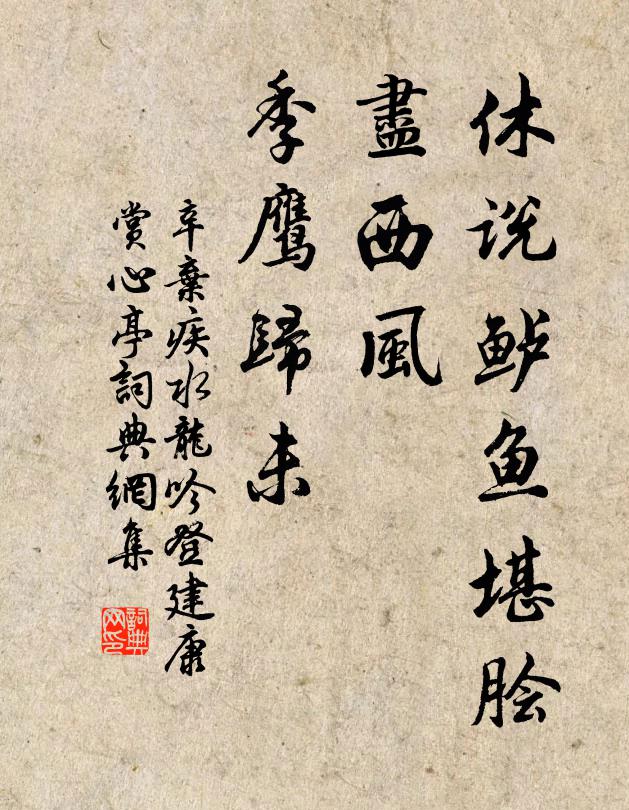 休说鲈鱼堪脍
盡西風
季鹰歸未
辛棄疾水龍吟登建康
賞心亭詞典網集
詞典网印